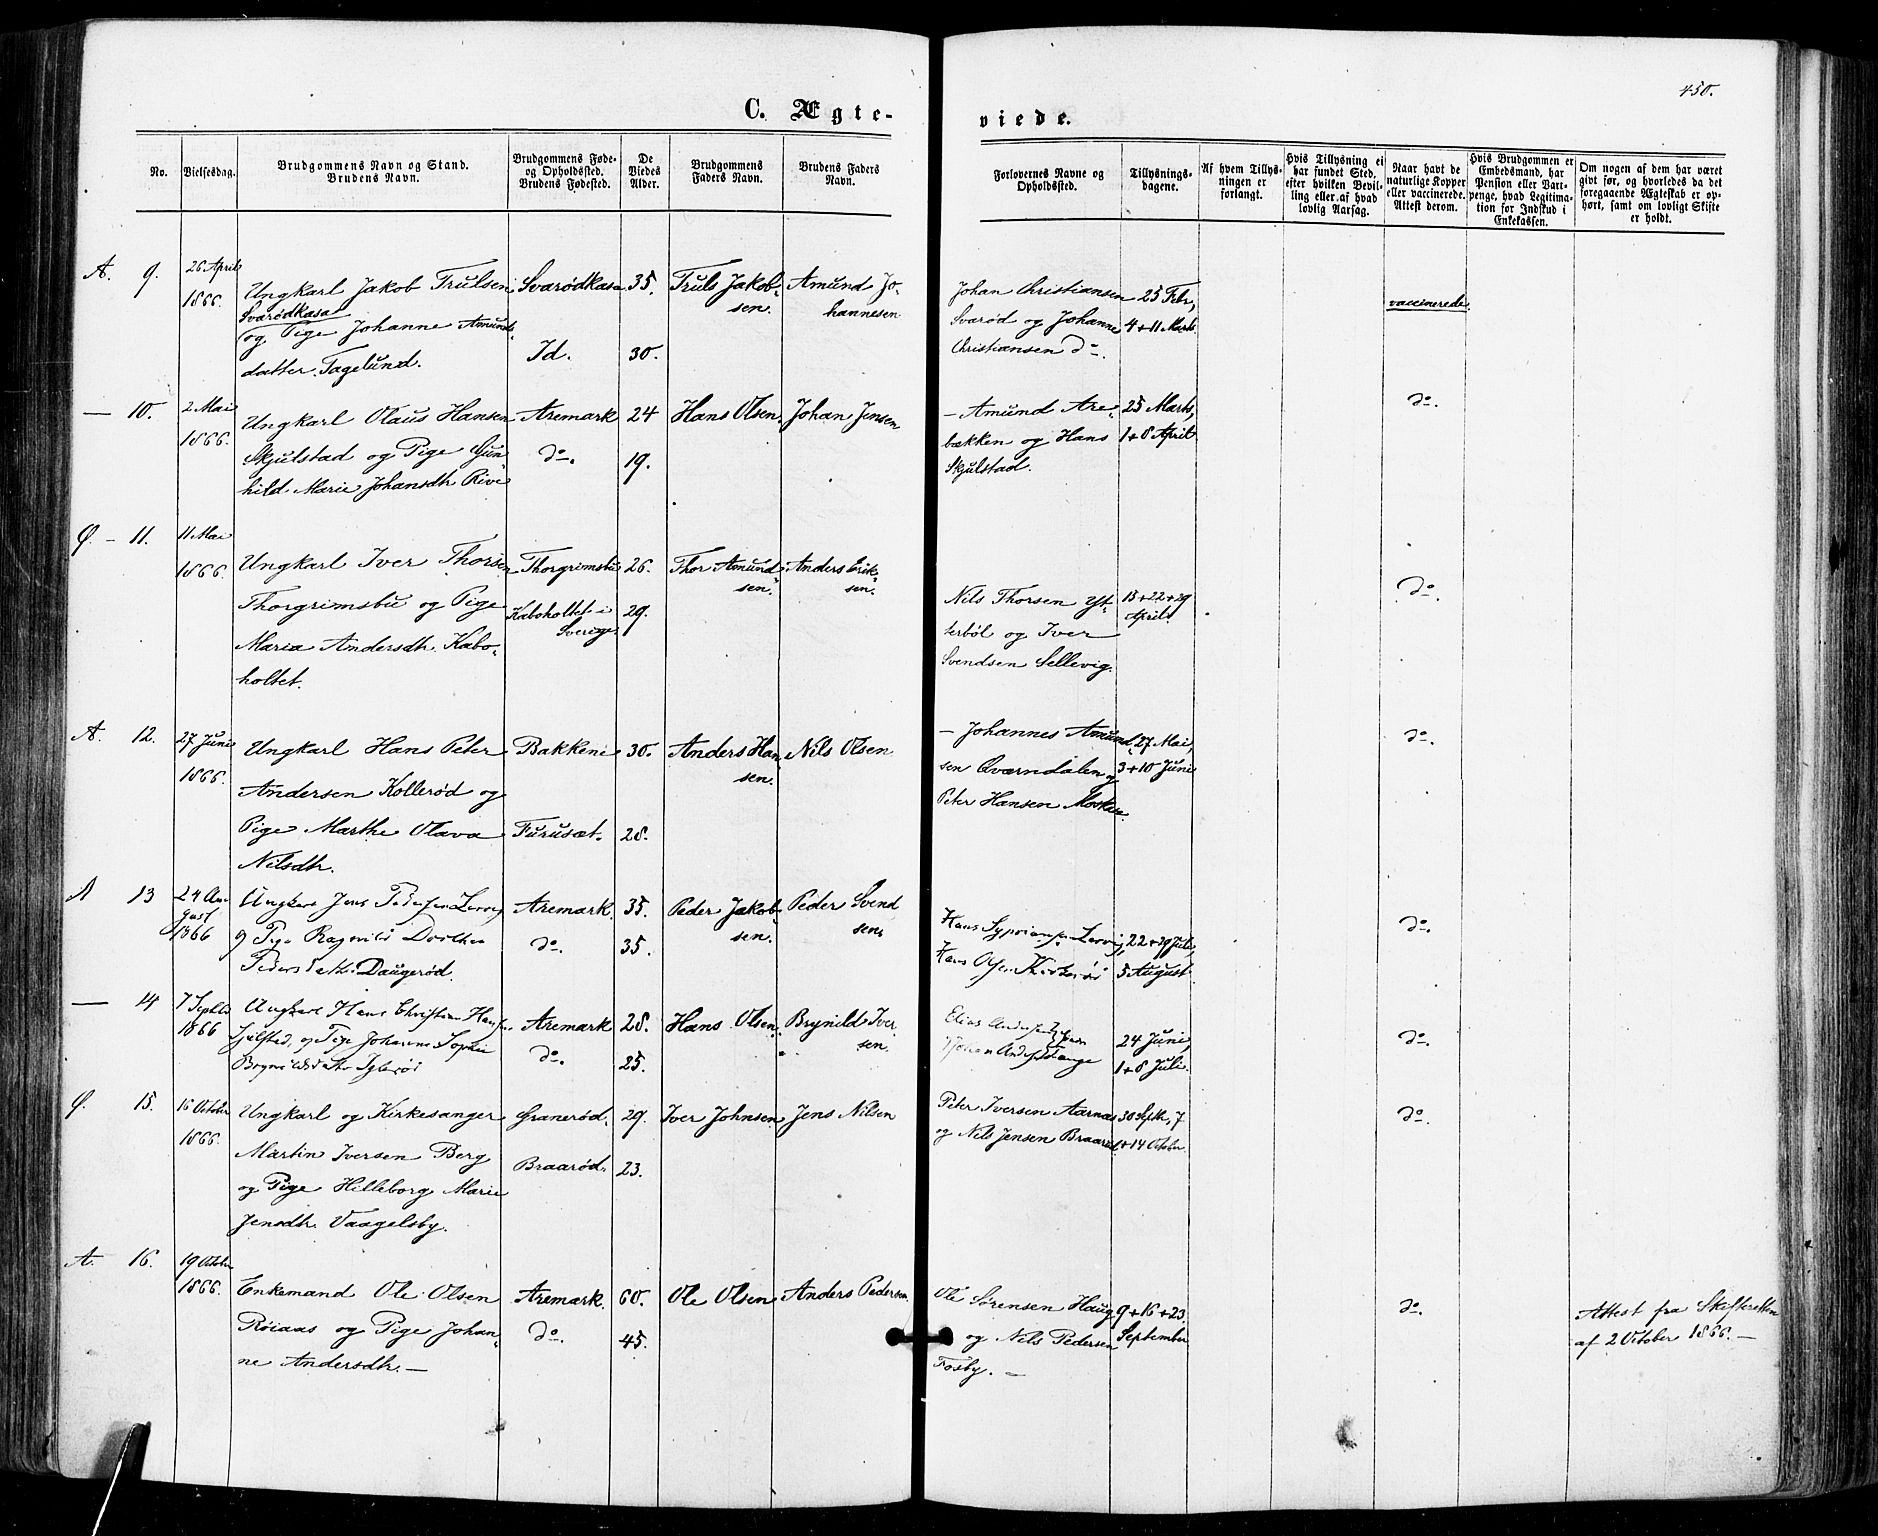 450.
C. Ægte-
viede.
No.
Vielsesdag.
Brudgommens Navn og Stand.
Brudens Navn.
Brudgommens Føde-
og Opholdssted.
Brudens Fødested.
De
Viedes
Alder.
Brudgommens
Faders Navn.
Brudens Faders
Navn.
Forlovernes Navne og
Opholdssted.
Tillysnings-
dagene.
Af hvem Tillys-
ningen er
forlangt.
Hvis Tillysning ei
har fundet Sted,
efter hvilken Bevil-
ling eller af hvad
lovlig Aarsag.
Naar havt de
naturlige Kopper
eller vaccinerede.
Attest derom.
Hvis Brudgommen er
Embedsmand, har
Pension eller Vart-
penge, hvad Legitima-
tion for Indskud i
Enkekassen.
Om nogen af dem har været
givt før, og hvorledes da det
foregaaende Ægteskab er op-
hørt, samt om lovligt Skifte
er holdt.
A. 9.
26 April
1866.
Ungkarl Jakob Trulsen
Svarødkasa
og Pige Johanne Amunds-
datter Tagelund.
Svarødkasa
Id.
35.
30.
Truls Jakob-
sen.
Amund Jo-
hannesen
Johan Christiansen
Svarød og Johanne
Christiansen do.
25 Febr,
4 + 11 Marts.
vaccinerede
— 10.
2 Mai
1866.
Ungkarl Olaus Hansen
Skjulstad og Pige Gun
hild Marie Johansdtr Rive
Aremark
do.
24
19.
Hans Olsen.
Johan Jensen
— Amund Are-
bækken og Hans
Skjulstad.
25 Marts,
1 + 8 April
do.
Ø. - 11.
11 Mai
1866.
Ungkarl Iver Thorsen
Thorgrimsbu og Pige
Maria Andersdtr. Kabo-
holtet.
Thorgrimsbu
Kaboholtet i
Sverige
26.
29.
Thor Amund-
sen.
Anders Erik-
sen.
Nils Thorsen Yt-
terböl og Iver
Svendsen Sellevig.
15 + 22 + 29
April
do.
A. 12.
27 Juni
1866.
Ungkarl Hans Peter
Andersen Kollerød og
Pige Marthe Olava
Nilsdtr.
Bakkene
Furusæt.
30.
28.
Anders Han-
sen.
Nils Olsen
— Johannes Amund-
sen Qværndalen og
Peter Hansen
27 Mai,
3 + 10 Juni
do.
A 13
24 Au-
gust
1866
Ungkarl Jens Pedersen Lervig
og Pige Ragnild Dorthea
Pedersdatter Daugerød.
Aremark.
do.
35.
35.
Peder Jakob-
sen.
Peder Svend
sen
Hans Lervig,
Hans Olsen
22 + 29 Juli,
5 August
do.
— 14
7 Septbr
1866
Ungkarl Hans Christian Hansen
og Pige Johanne Sophie
Aremark
do.
28.
25.
Hans Olsen.
Brynild Iver
sen.
Elias Andersen
Johan
24 Juni,
1 + 8 Juli.
do.
Ø. 15.
16 October
1866.
Ungkarl og Kirkesanger
Martin Iversen Berg
og Pige Hilleborg Marie
Jensdtr. Vaagelsby.
Granerød.
Braarød.
29.
23.
Iver Johnsen
Jens Nilsen
Peter Iversen Aarnæs
og Nils Jensen Braarød
30 Septbr, 7
+ 14 October
do.
A. 16.
19 October
1866.
Enkemand Ole Olsen
Röiaas og Pige Johan-
ne Andersdtr. —
Aremark.
do.
60.
45.
Ole Olsen
Anders Pedersen.
Ole Sørensen Haug
og Nils Pedersen
Fosby. —
9 + 16 + 23
September
do.
Attest fra Skifteretten
af 2 October 1866. —